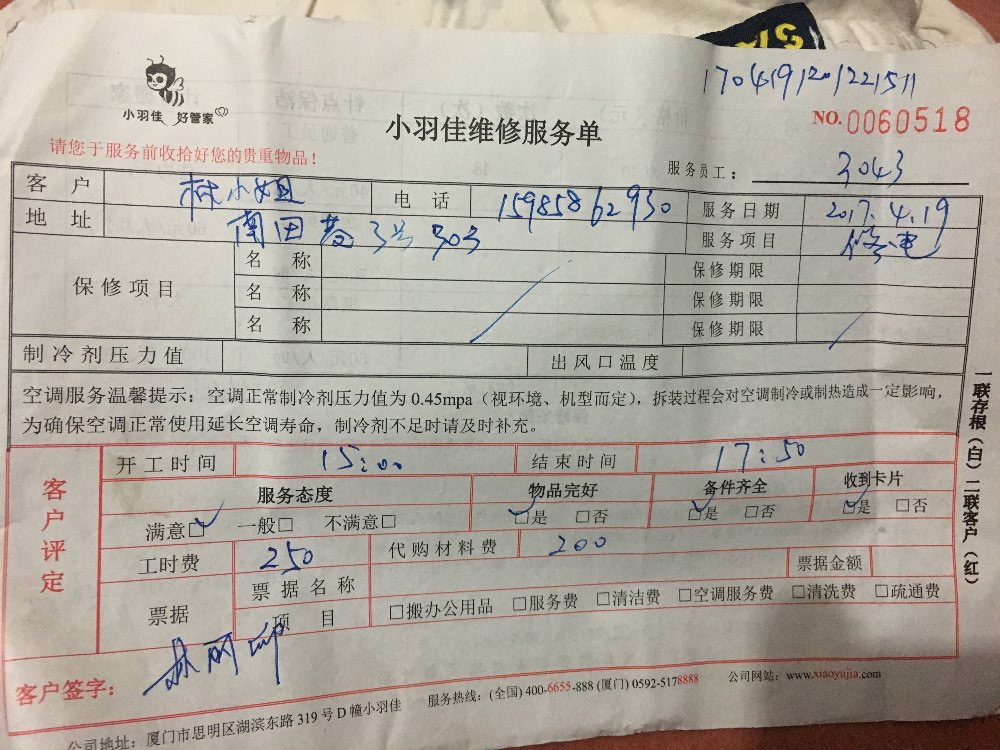 1704191201221511
小羽佳 好管家
小羽佳维修服务单
NO.0060518
请您于服务前收拾好您的贵重物品！
服务员工： 3043
客户 林小姐 电话 15985862930 服务日期 2017.4.19
地址 南田巷3号303 服务项目 修电
保修项目 名称 保修期限
名称 保修期限
名称 保修期限
制冷剂压力值 出风口温度
空调服务温馨提示：空调正常制冷剂压力值为0.45mpa（视环境、机型而定），拆装过程会对空调制冷或制热造成一定影响，
为确保空调正常使用延长空调寿命，制冷剂不足时请及时补充。
一联存根（白）二联客户（红）
客户评定
开工时间 15:00 结束时间 17:50
服务态度 物品完好 备件齐全 收到卡片
满意□✓ 一般□ 不满意□ ☑是 □否 ☑是 □否 ☑是 □否
工时费 250 代购材料费 200
票据 票据名称 票据金额
项目 □搬办公用品 □服务费 □清洁费 □空调服务费 □清洗费 □疏通费
客户签字：
服务热线：(全国) 400-6655-888 (厦门) 0592-5178888 公司网站：www.xiaoyujia.com
公司地址：厦门市思明区湖滨东路319号D幢小羽佳